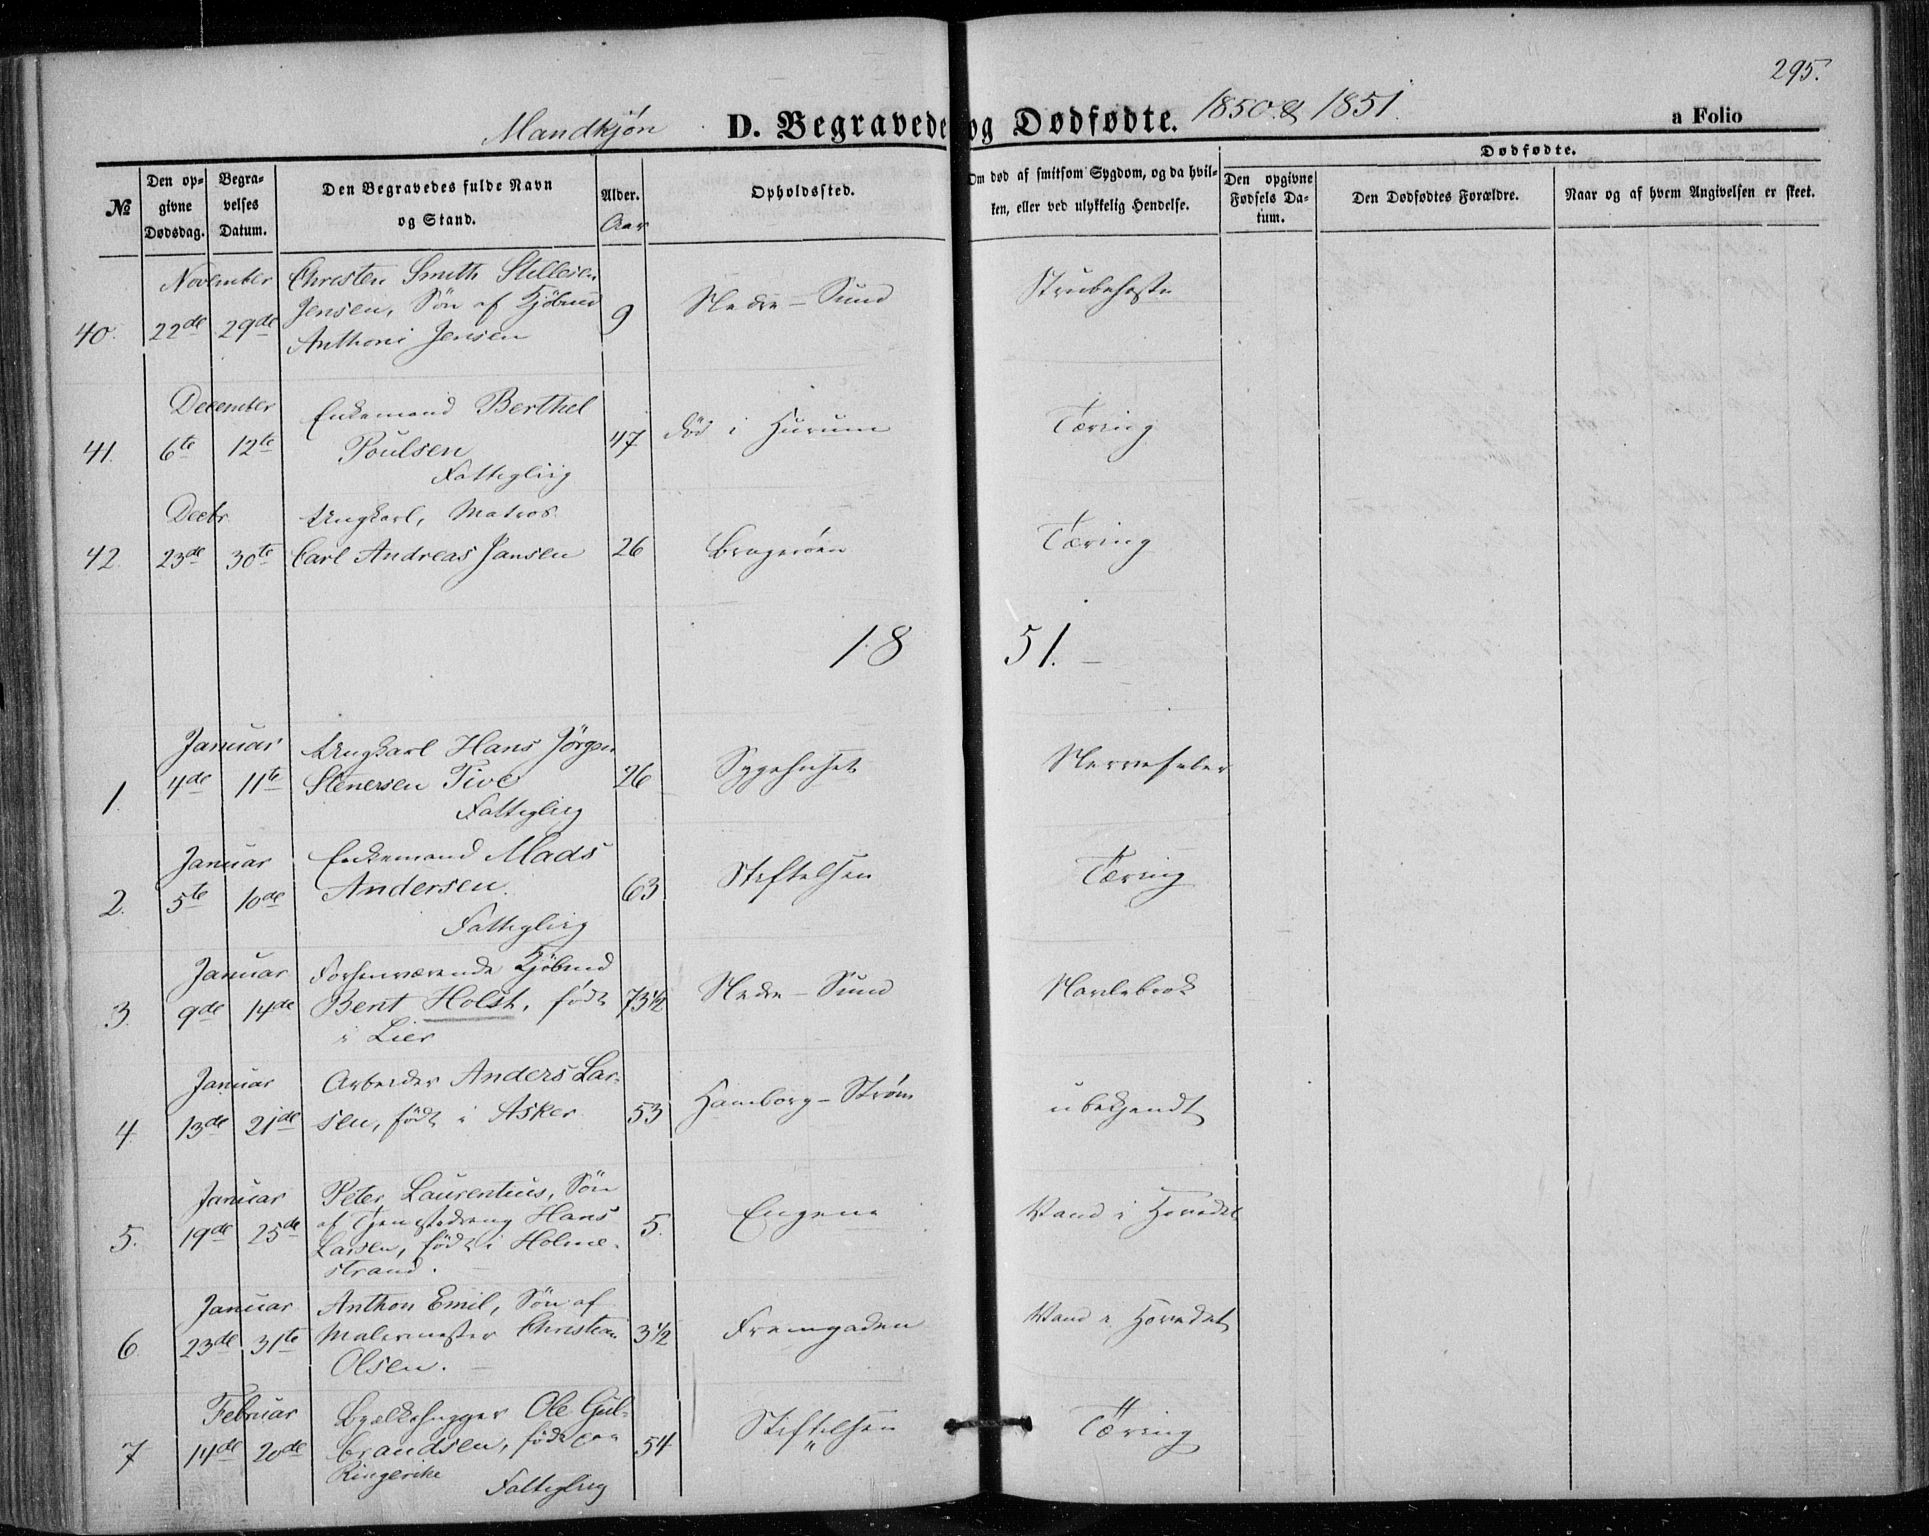 295.
Mandkjøn D. Begravede og Dødfødte. 1850 & 1851. a Folio
№ Den opgivne Dødsdag. Begravelses Datum. Den Begravedes fulde Navn og Stand. Alder. Aar Opholdssted. Om død af smitsom Sygdom, og da hvilken, eller ved ulykkelig Hendelse. Dødfødte. Den opgivne Fødsels Datum. Den Dødfødtes Forældre. Naar og af hvem Angivelsen er skeet.
November Christen Smith
Jensen, Søn af Kjøbmd
40. 22de 29de Anthoni Jensen 9 Nedre-Sund Strubehoste
December Enkemand Berthel
41. 6te 12te Poulsen 47 død i Hurum Tæring
Fattiglig
Decbr Ungkarl, Matros
42. 23de 30te Carl Andreas Jansen 26 Bragerøen Tæring
18 51.
Januar Ungkarl Hans Jörgen
1. 4de 11te Stenersen Tive 26 Sygehuset Nervefeber
Fattiglig
Januar Enkemand Mads
2. 5te 10de Andersen. 63 Stiftelsen Tæring
Fattiglig
Januar Forhenværende Kjøbmd
3. 9de 14de Bent Holst, født 73½ Nedre-Sund Navlebrok
i Lier
Januar Arbeider Anders Lar-
4. 13de 21de sen, født i Asker 53 Hamborg-Strøm ubekjendt
Januar Peter Laurentius, Søn
af Tjenestedreng Hans
5. 19de 25de Larsen, født i Holme- 5. Engene Vand i Hovedet
strand.
Januar Anthon Emil, Søn af
6. 23de 31te Malermester Christian 3½ Fremgaden Vand i Hovedet
Olsen.
Februar Bjælkehugger Ole Gul-
7 14de 20de brandsen, født paa 54 Stiftelsen Tæring
Ringerike
Fattiglig